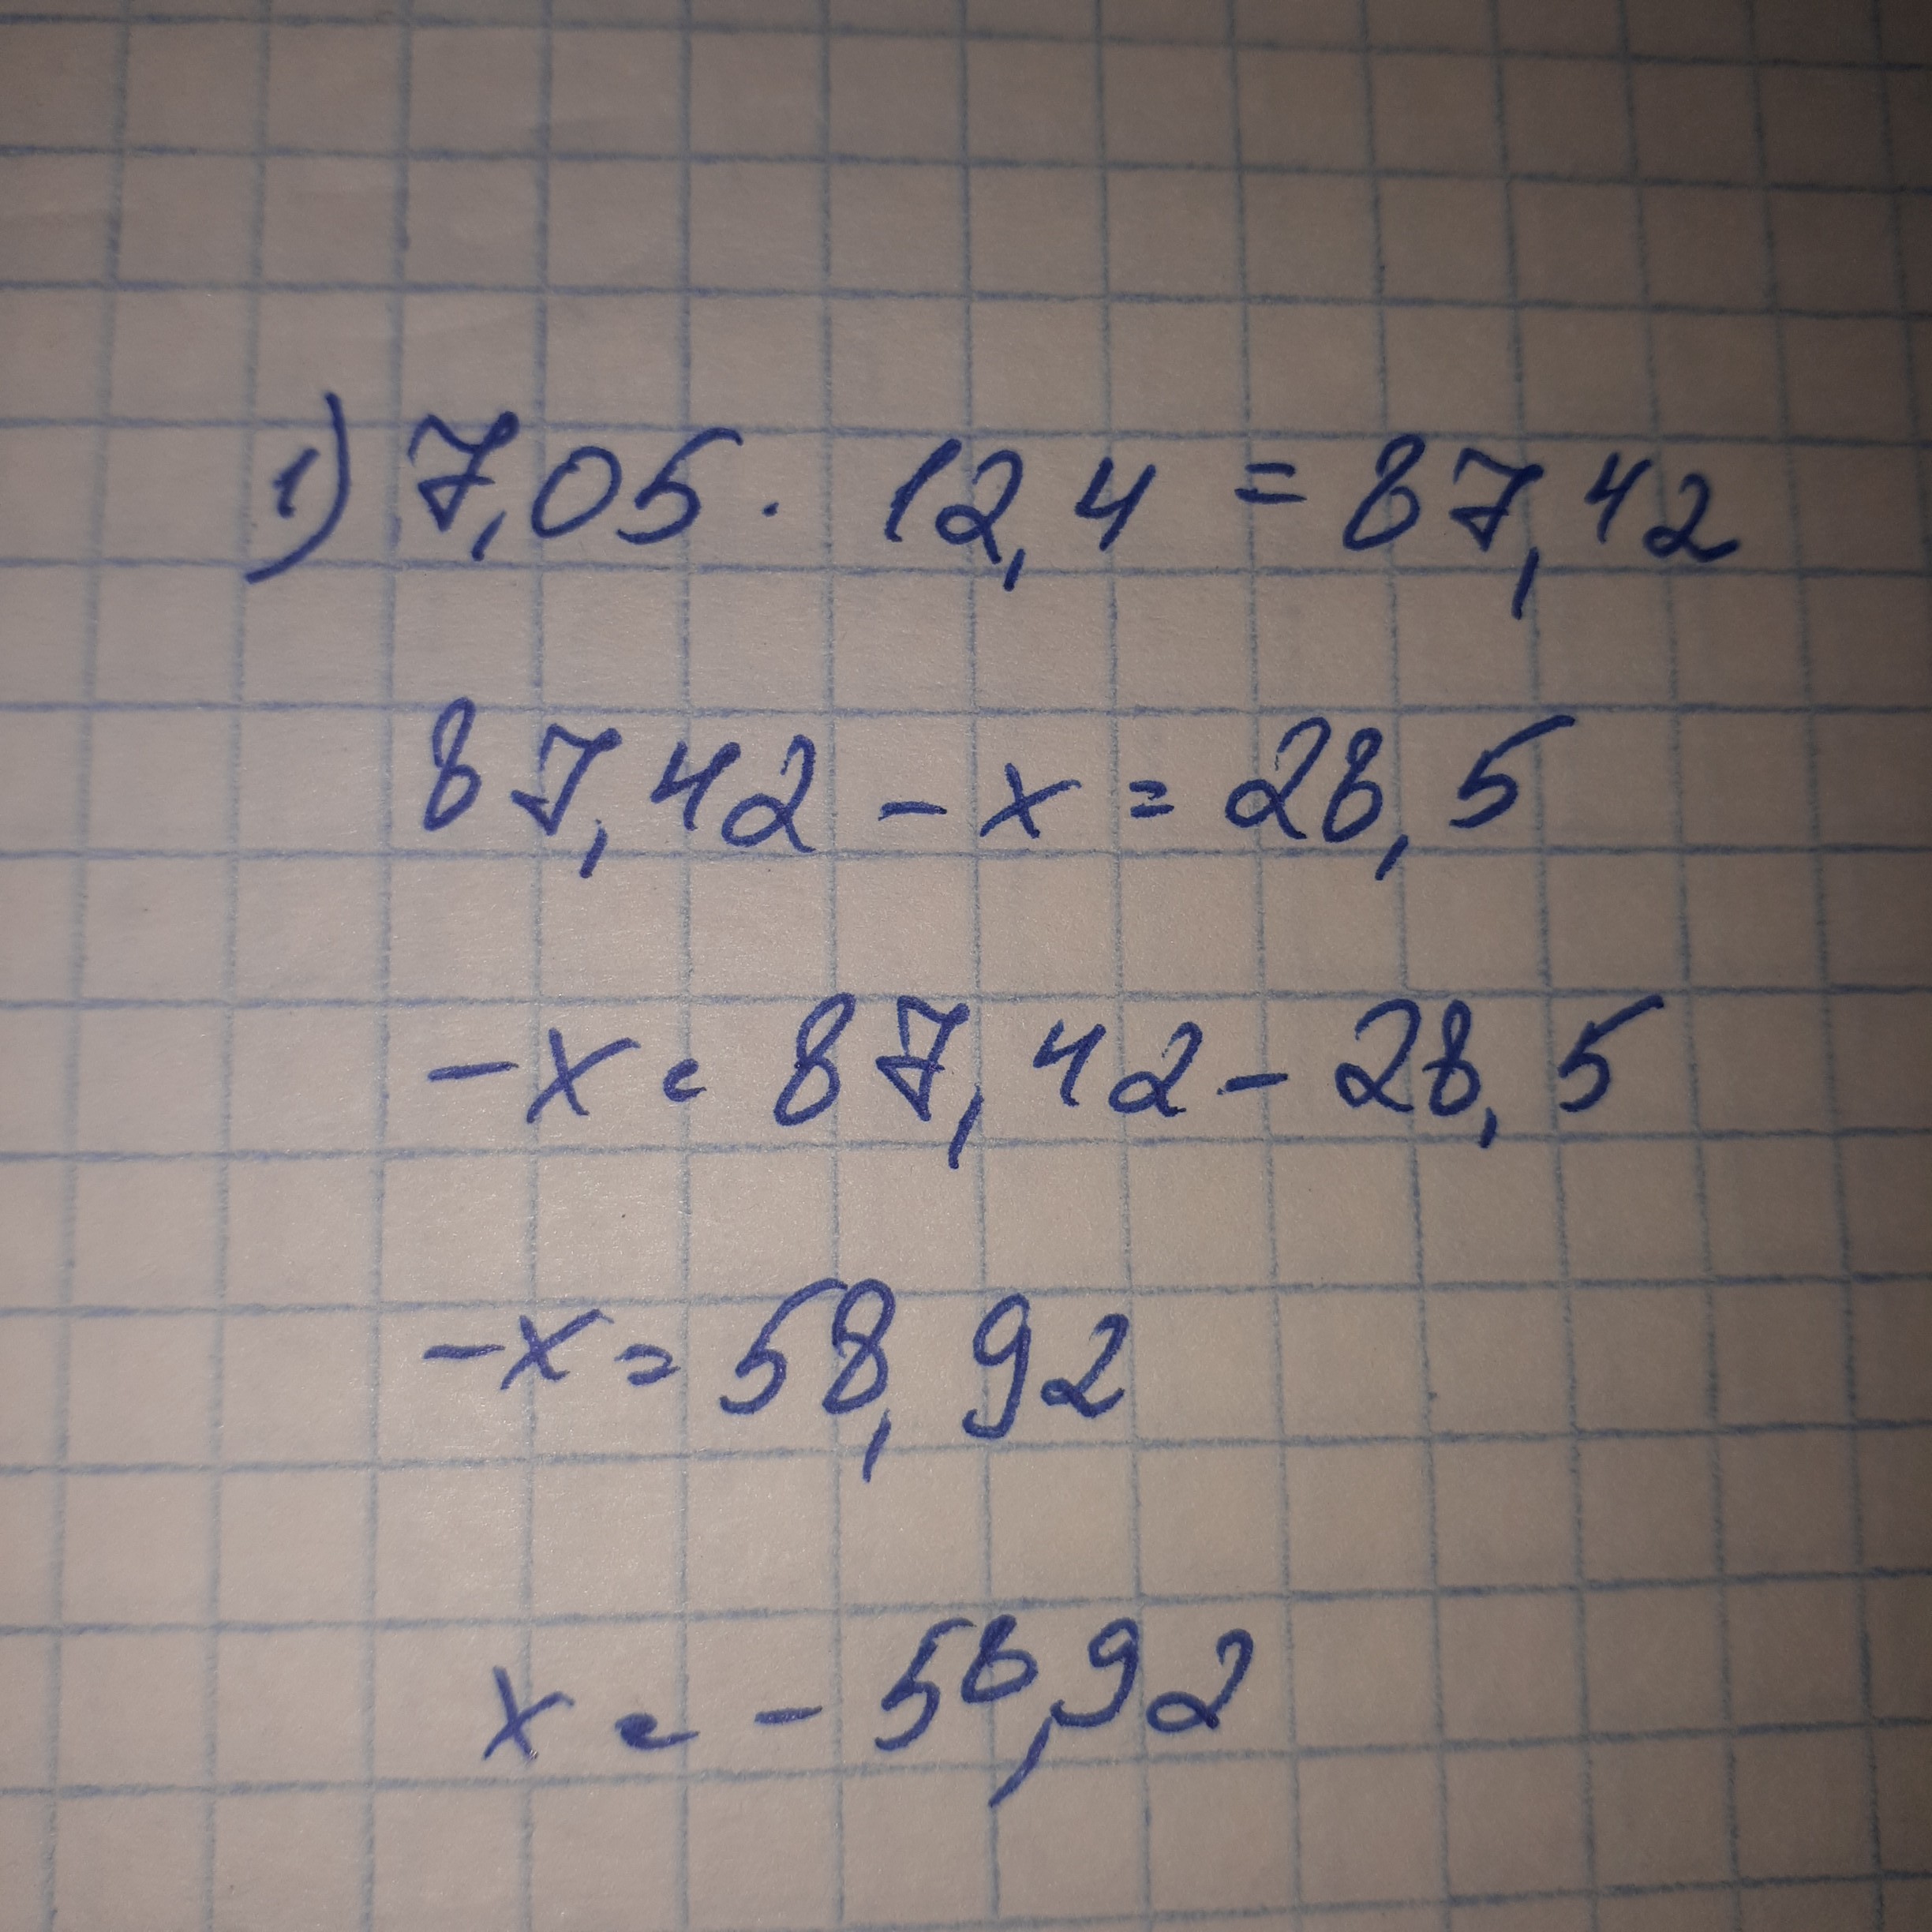 1) 7,05 · 12,4 = 87,42
87,42 - x = 28,5
-x = 87,42 - 28,5
-x = 58,92
x = - 58,92